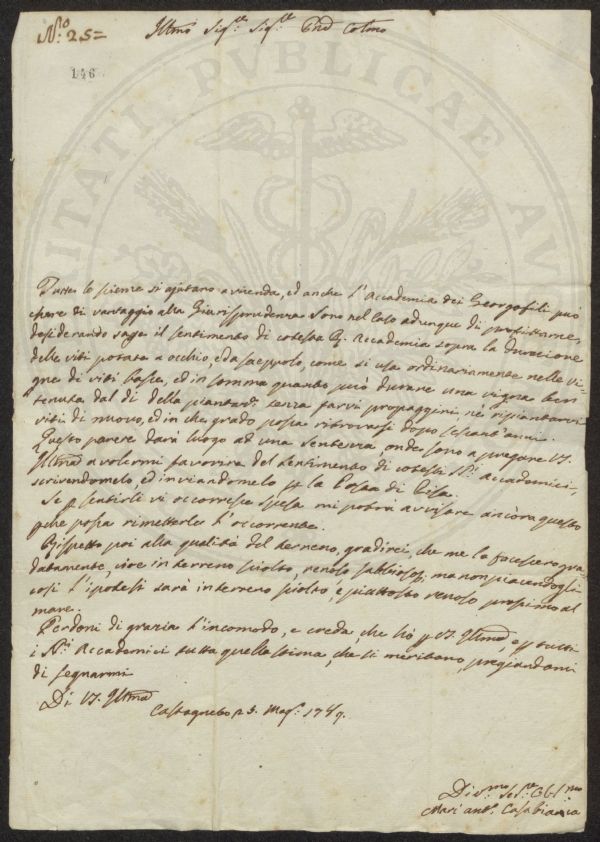 N.º 25=
146
Illmo Sig.re Sig.re Prõe Colmo
Tutte le scienze si ajutano a vicenda, ed anche l'Accademia dei Georgofili può
essere di vantaggio alla Giurisprudenza. Sono nel caso adunque di profittarne,
desiderando sapere il sentimento di cotesta Accademia sopra la durazione
delle viti potate a occhio, e da saeppolo, come si usa ordinariamente nelle vi-
gne di viti basse, ed in somma quanto può durare una vigna ben
tenuta dal dì della piantaz. senza farvi propaggini, nè ripiantarvi
viti di nuovo, ed in che grado possa ritrovarsi dopo sessant'anni.
Questo parere darà luogo ad una sentenza, onde sono a pregare VS.
Illma a volermi favorire del sentimento di cotesti SS.ri accademici,
scrivendomelo, ed inviandomelo p la Posta di Pisa.
Se p sentirli vi occorresse spesa mi potrà avvisare ancora questo
pche possa rimetterle l'occorrente.
Rispetto poi alla qualità del terreno, gradirei, che me la facessero gra-
datamente, cioè in terreno sciolto, renoso, sabbioso; ma non piacendogli
così l'ipotesi sarà in terreno sciolto, e piuttosto renoso prossimo al
mare.
Perdoni di grazia l'incomodo, e creda che hò p VS. Illma, e p tutti
i SS.ri Accademici tutta quella stima, che si meritano, pregiandomi
di segnarmi
Di VS. Illma
Castagneto 23. Mag. 1789.
Div.mo Se.re Obl.mo
Mari ant.o Casabianca
PUBLICAE